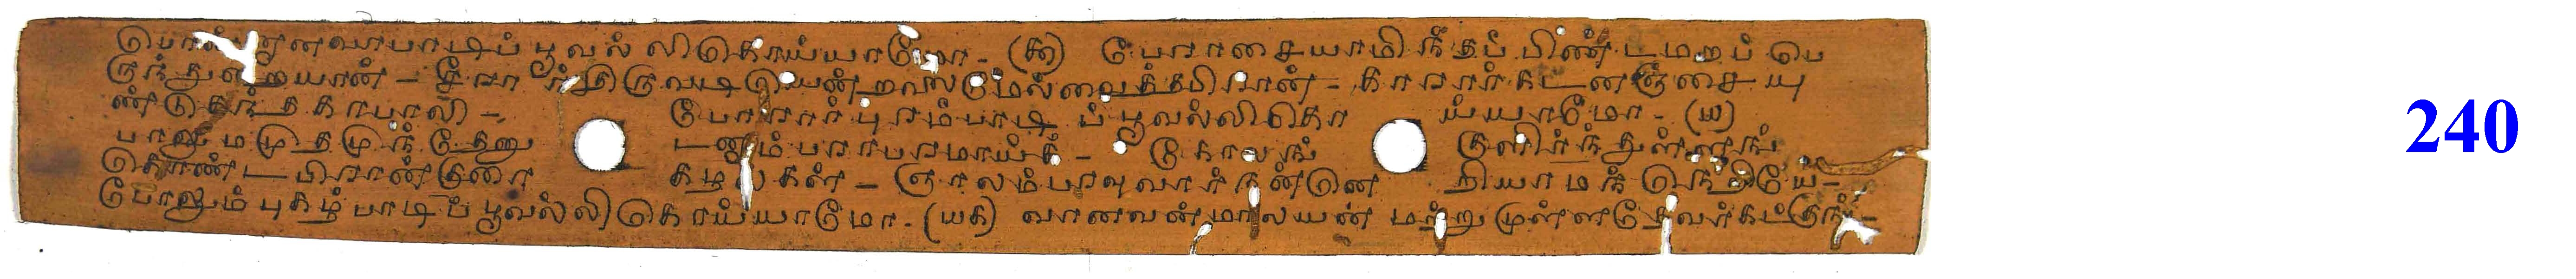 பாடிப் பூவல்லிகொய்யாமோ - (௯) பேராசையாமிந்தப் பிண்டமறப் பெ
ருந்துறையான் - சீரார்திருவடியென்றலைமேல்வைத்தபிரான் - காரார்கடனஞ்சையு
ண்டுகந்தகாபாலி - போரார்புரம்பாடிப் பூவல்லிகொய்யாமோ - (௰)
பாலுமமுதமுந்தேனுடனும்பராபரமாய்க் - கோலங்குளிர்ந்துள்ளங்
கொண்டபிரான்குரைகழல்கள் - ஞாலம்பரவுவார்நன்னெறியாமந்நெறியே -
போலும்புகழ்பாடிப் பூவல்லிகொய்யாமோ - (௰௧) வானவன்மாலயன் மற்றுமுள்ளதேவர்கட்கும் -
240